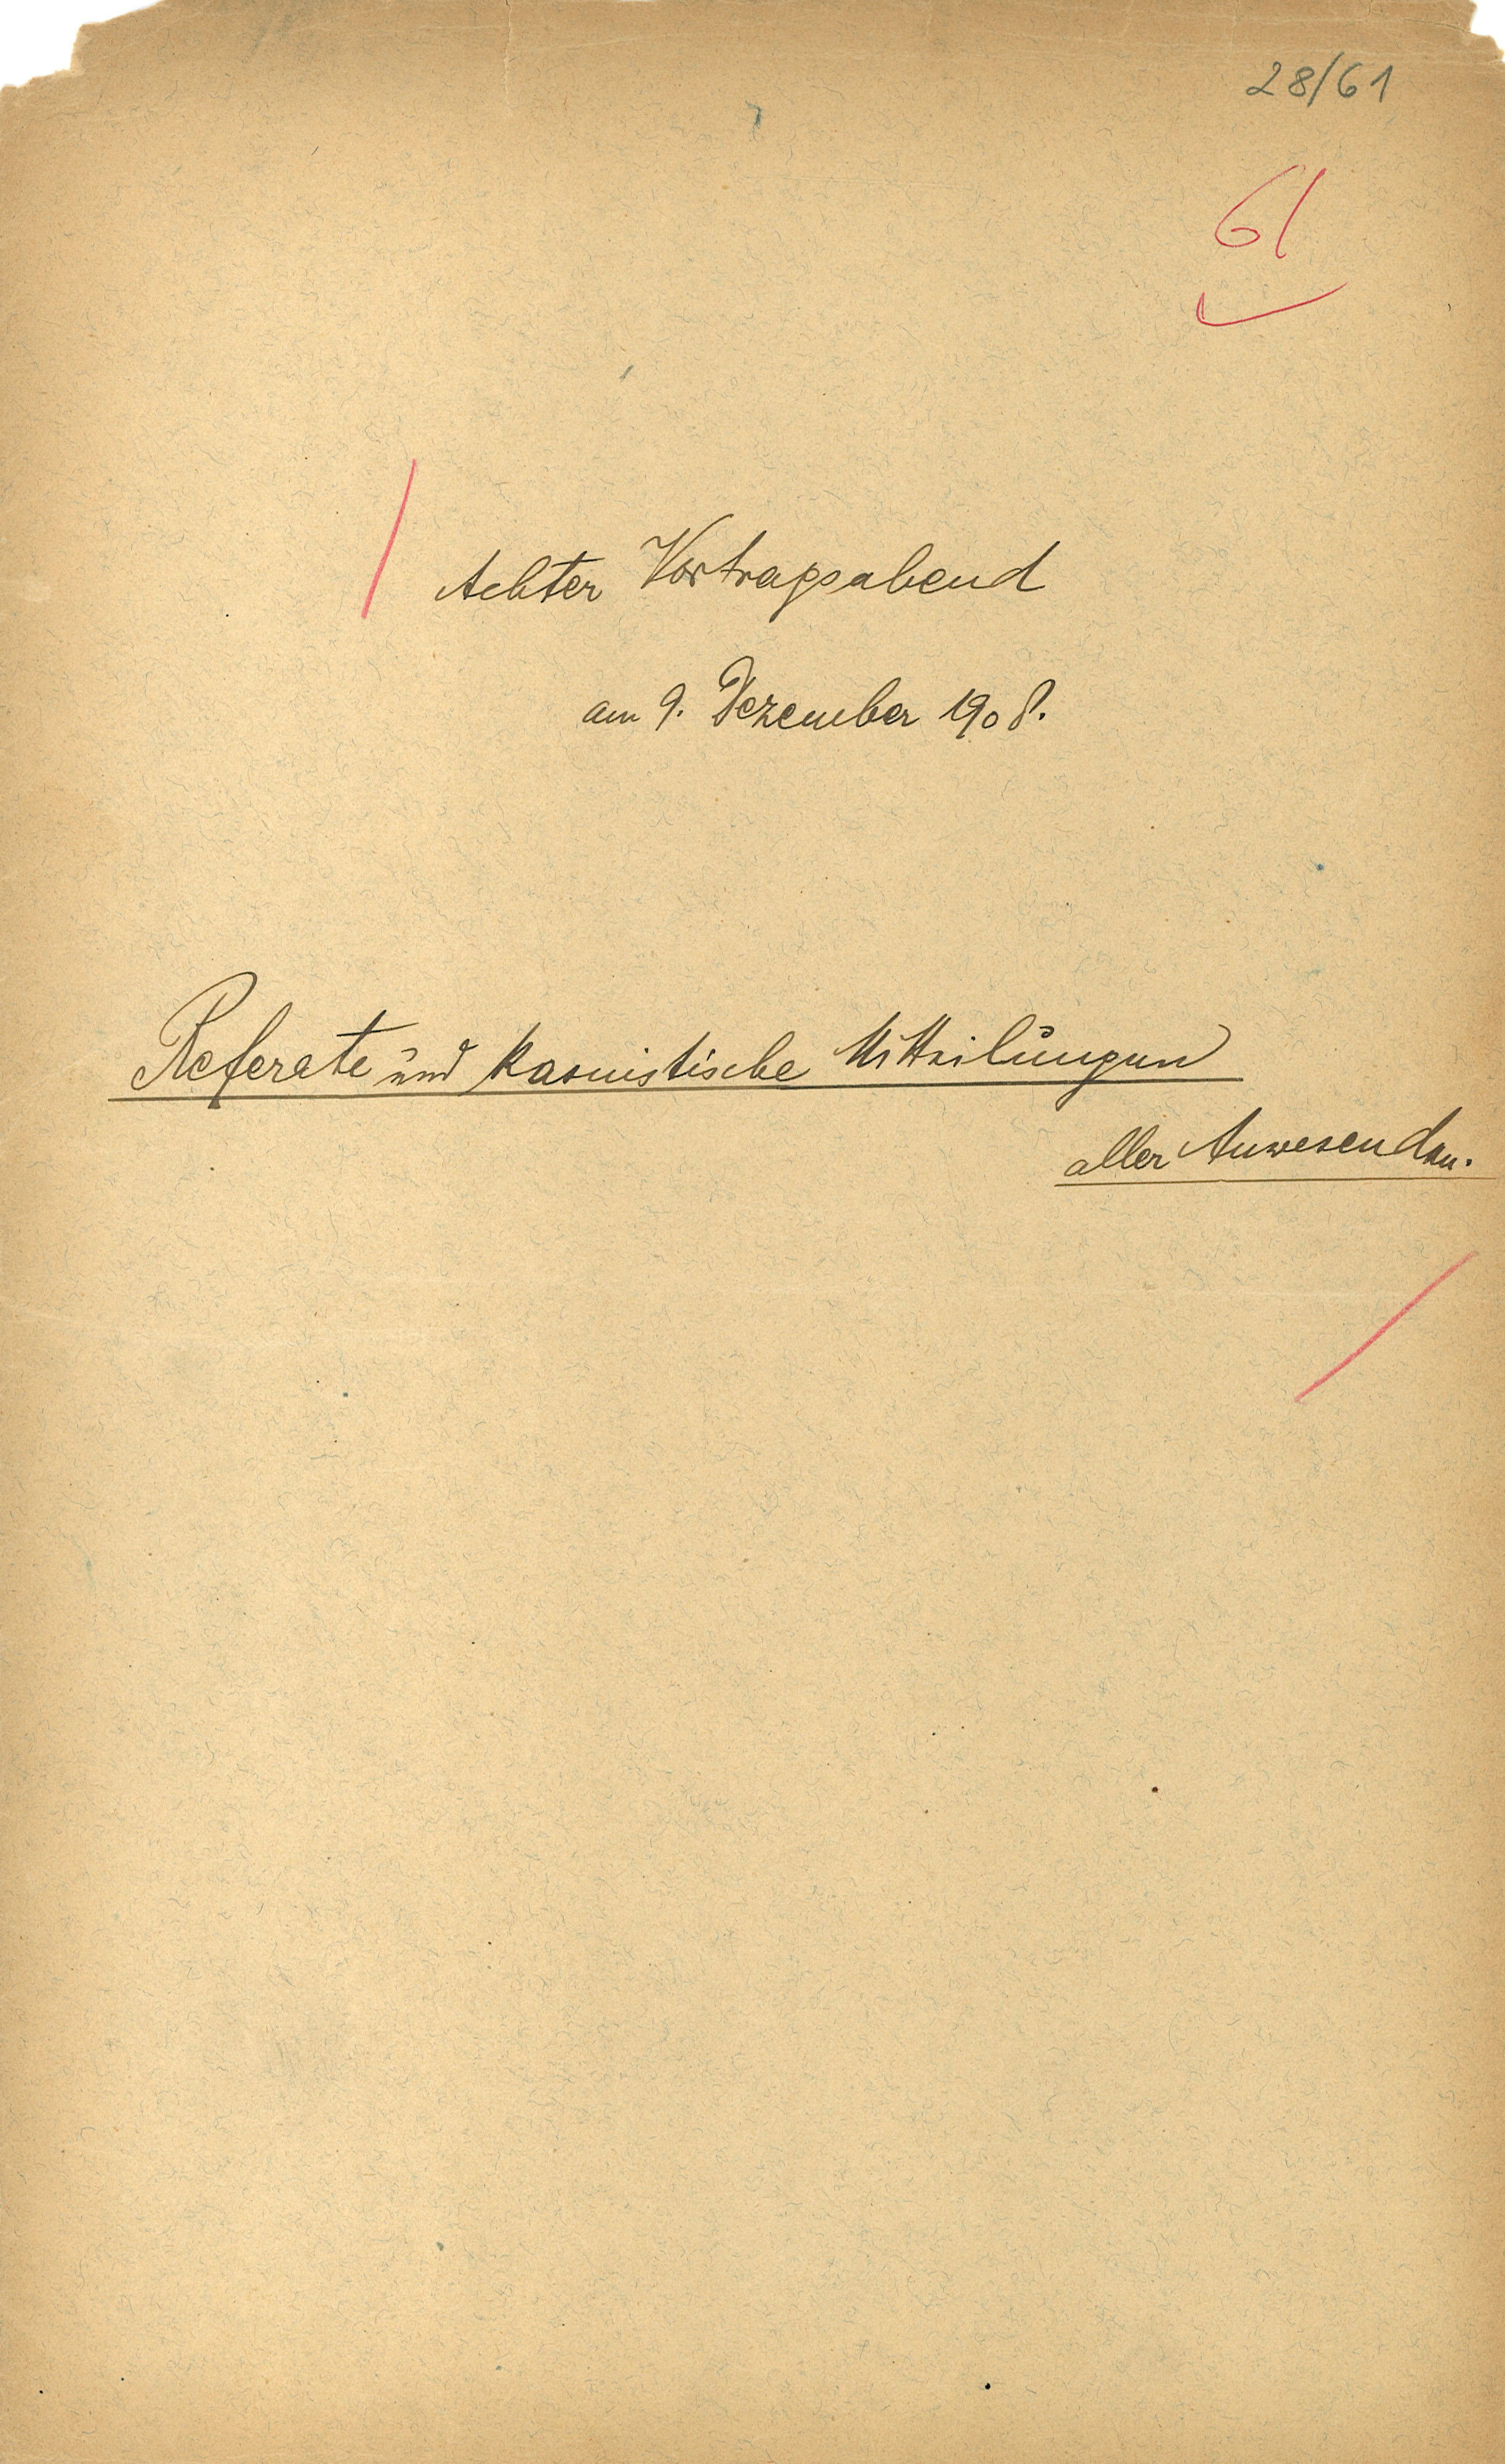 28/61
61
Achter Vortragsabend
am 9. Dezember 1908.
Referate und kasuistische Mitteilungen
aller Anwesenden.